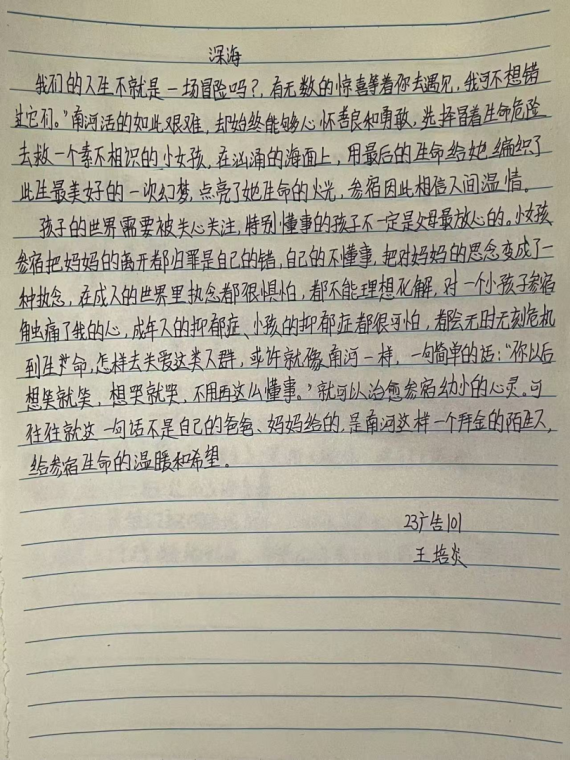 深海
我们的人生不就是一场冒险吗？,有无数的惊喜等着你去遇见,我可不想错
过它们。"南河活的如此艰难,却始终能够心怀善良和勇敢,选择冒着生命危险
去救一个素不相识的小女孩,在汹涌的海面上,用最后的生命给她编织了
此生最美好的一次幻梦,点亮了她生命的火光,参宿因此相信人间温情。
孩子的世界需要被关心关注,特别懂事的孩子不一定是父母最放心的。小女孩
参宿把妈妈的离开都归罪是自己的错,自己的不懂事,把对妈妈的思念变成了一
种执念,在成人的世界里执念都很惧怕,都不能理想化解,对一个小孩子参宿
触痛了我的心,成年人的抑郁症、小孩的抑郁症都很可怕,都会无时无刻危机
到生命,怎样去关爱这类人群,或许就像南河一样,一句简单的话:"你以后
想笑就笑,想哭就哭,不用再这么懂事。"就可以治愈参宿幼小的心灵。可
往往就这一句话不是自己的爸爸、妈妈给的,是南河这样一个拜金的陌生人,
给参宿生命的温暖和希望。
23广告101
王培炎